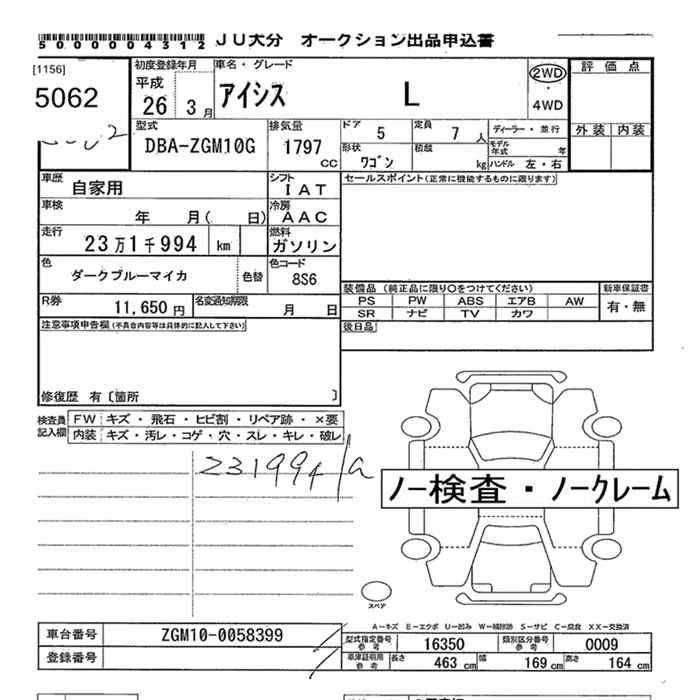 5000004312 JU大分 オークション出品申込書
[1156] 初度登録年月 車名・グレード 2WD 評価点
5062 平成 26 3月 アイシス L ・4WD
型式 DBA-ZGM10G 排気量 1797 CC ドア 5 定員 7人 ディーラー・並行 外装 内装
形状 ワゴン 積載 kg モデル年式 年 ハンドル 左・右
車歴 自家用 シフト IAT セールスポイント(正常に機能するものに限ります)
車検 年 月( 日) 冷房 AAC
走行 23万1千994 km 燃料 ガソリン
色 ダークブルーマイカ 色替 色コード 8S6
装備品(純正品に限り○をつけてください) 新車保証書
R券 11,650円 名変通知期限 月 日 PS PW ABS エアB AW 有・無
SR ナビ TV カワ
注意事項申告欄(不具合内容等は具体的に記入して下さい) 後日品
修復歴 有〔箇所 〕
検査員記入欄 FW キズ・飛石・ヒビ割・リペア跡・×要
内装 キズ・汚レ・コゲ・穴・スレ・キレ・破レ
231994
ノー検査・ノークレーム
スペア
A−キズ E−エクボ U−凹み W−補修跡 S−サビ C−腐食 XX−交換済
車台番号 ZGM10-0058399 型式指定番号 参考 16350 類別区分番号 参考 0009
登録番号 車庫証明用 参考 長さ 463 cm 幅 169 cm 高さ 164 cm